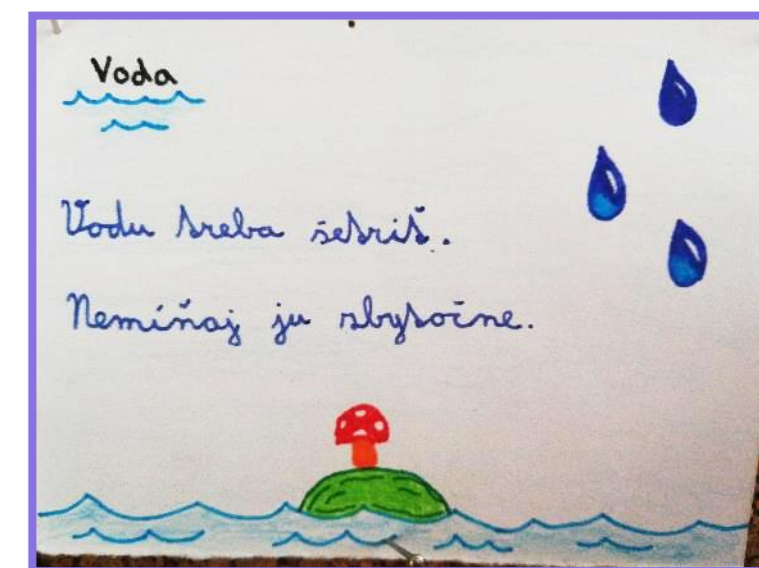 Voda
Vodu treba šetriť.
Nemíňaj ju zbytočne.